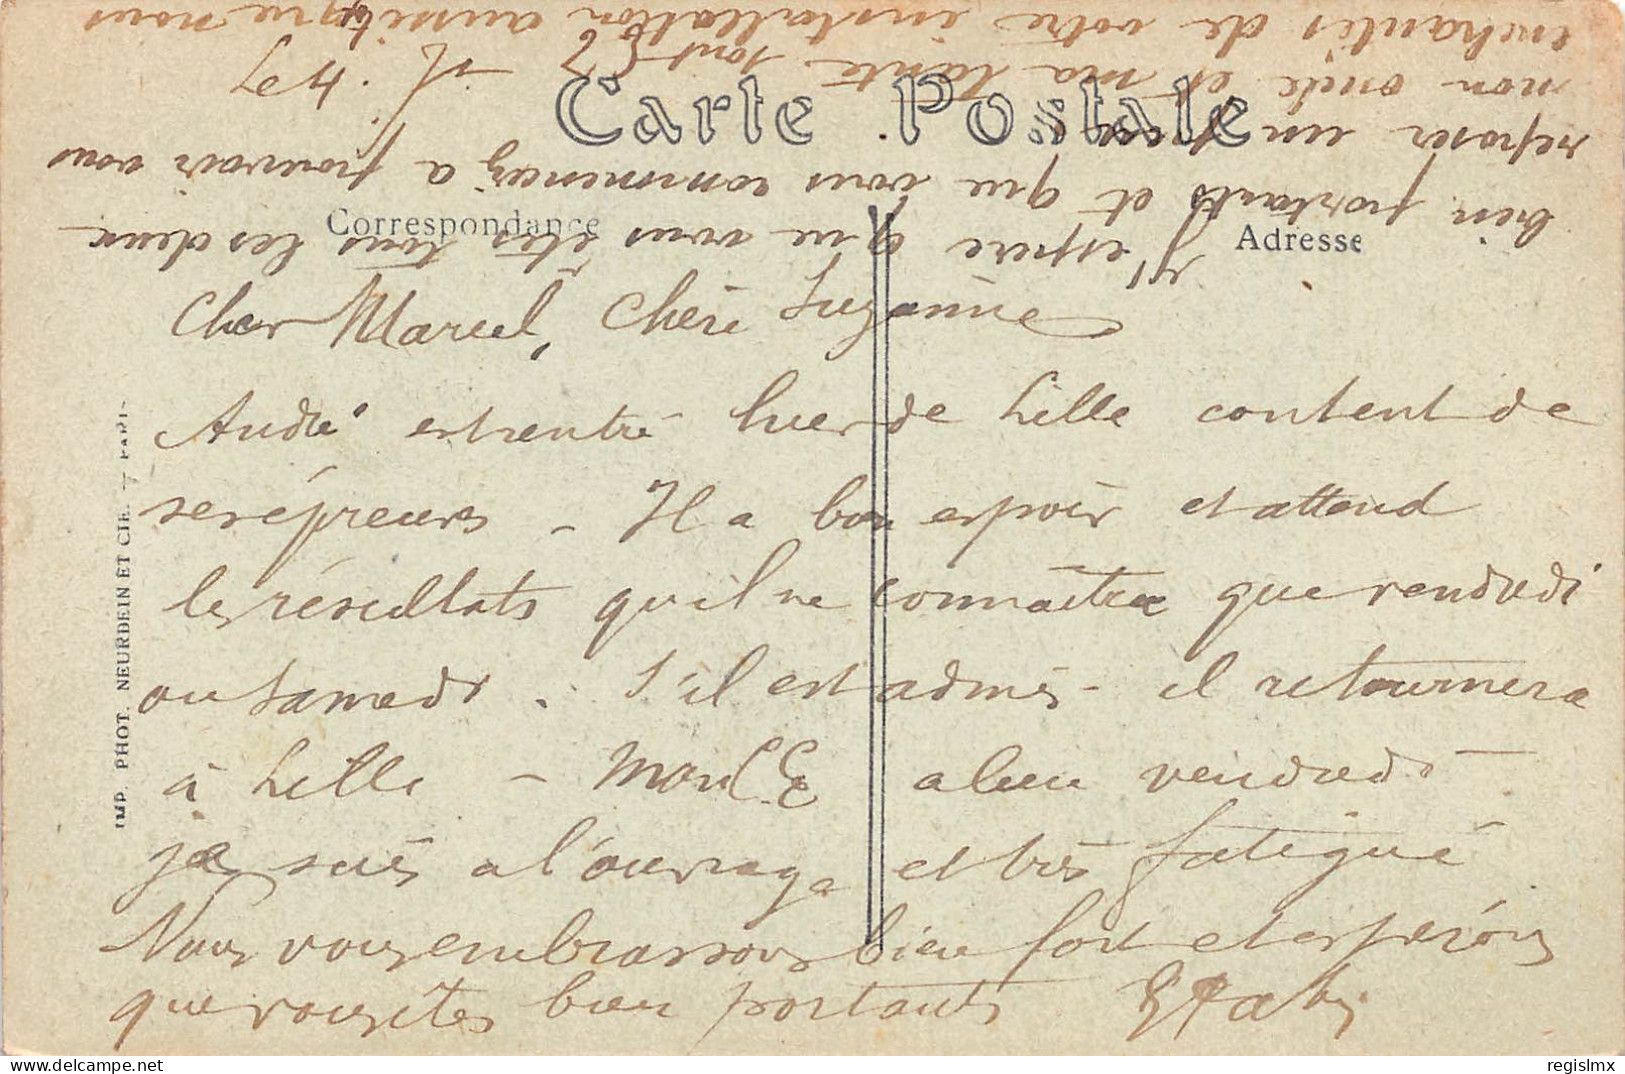 Carte Postale
Correspondance
Adresse
Le 4.
Cher Marcel, Chère Suzanne
André est rentré hier de Lille content de
ses épreuves - Il a bon espoir et attend
les résultats qu'il ne connaîtra que vendredi
ou samedi. S'il est admis il retournera
à Lille - Mon C.E a lieu vendredi
je suis a l'ouvrage et très fatigué
Nous vous embrassons bien fort et espérons
que vous êtes bien portants
J'espère que vous êtes tous les deux
bien portants et que vous commencez a pouvoir vous
reposer un peu.
mon oncle et ma tante sont
enchantés de votre installation aussi que nous
IMP. PHOT. NEURDEIN ET CIE. — PARIS
regislmx